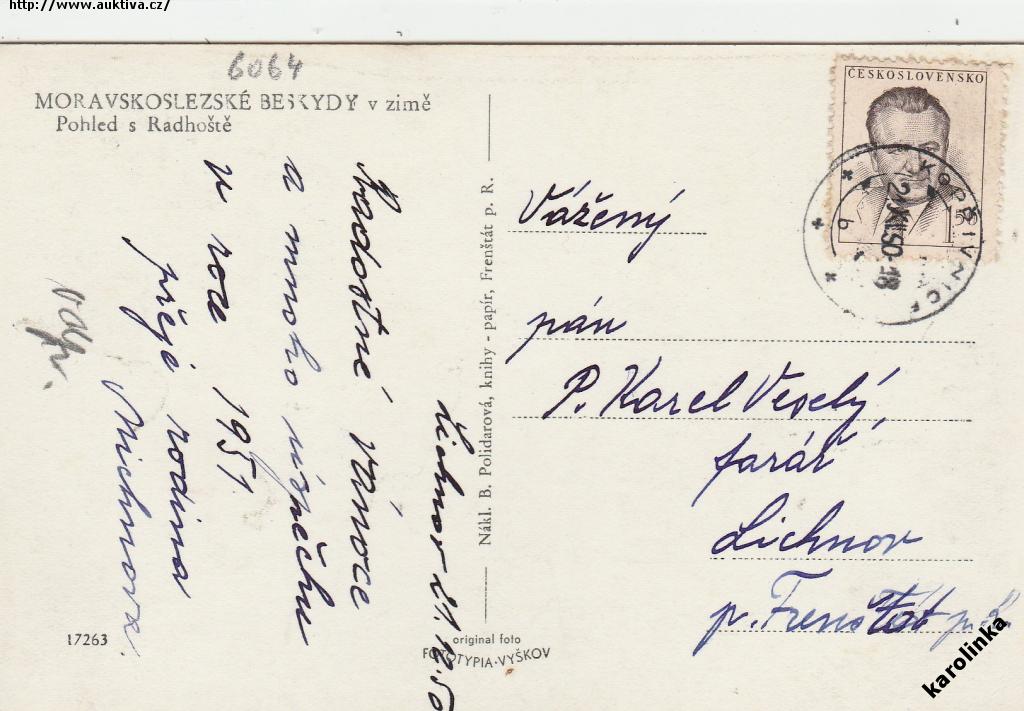 http://www.auktiva.cz/
6064
MORAVSKOSLEZSKÉ BESKYDY v zimě
Pohled s Radhoště
Lichnov 21.12.50
Radostné Vánoce
a mnoho úspěchu
v roce 1951
přeje rodina
17263
Nákl. B. Polidarová, knihy - papír, Frenštát p. R.
original foto
FOTOTYPIA-VYŠKOV
ČESKOSLOVENSKO
1 50
KOPŘIVNICE
b
Vážený
pán
P. Karel Veselý,
farář
Lichnov
p. Frenštát p. R.
karolinka